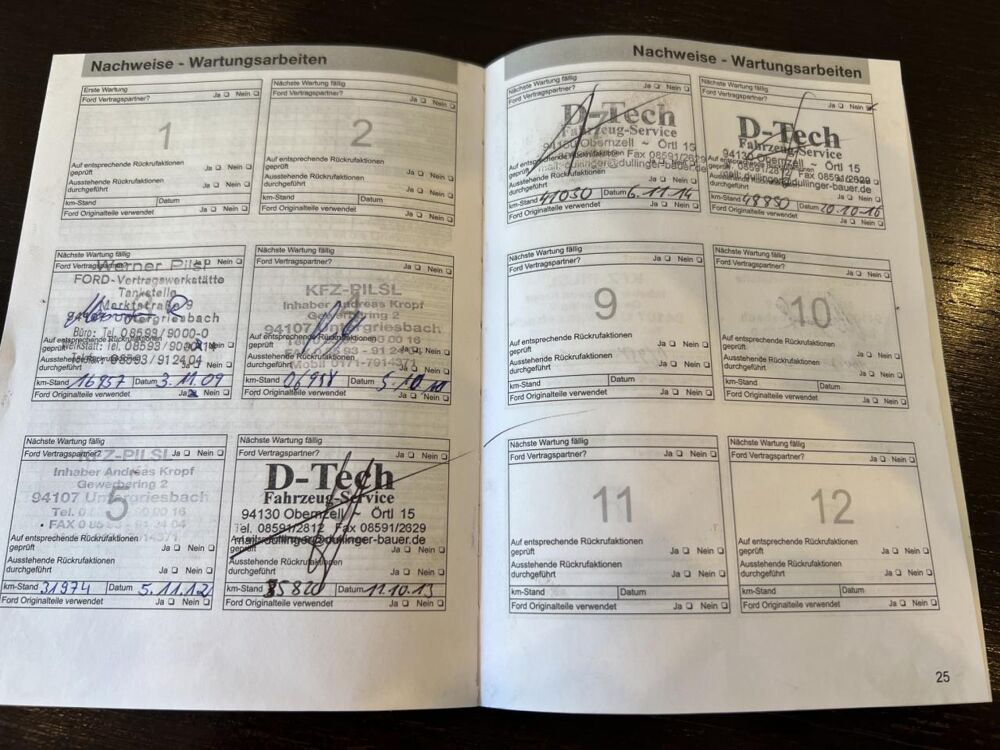 Nachweise - Wartungsarbeiten
Erste Wartung
Ford Vertragspartner? Ja Nein
1
Auf entsprechende Rückrufaktionen
geprüft Ja Nein
Ausstehende Rückrufaktionen
durchgeführt Ja Nein
km-Stand Datum
Ford Originalteile verwendet Ja Nein
Nächste Wartung fällig
Ford Vertragspartner? Ja Nein
2
Auf entsprechende Rückrufaktionen
geprüft Ja Nein
Ausstehende Rückrufaktionen
durchgeführt Ja Nein
km-Stand Datum
Ford Originalteile verwendet Ja Nein
Nächste Wartung fällig
Ford Vertragspartner? Ja Nein
Werner Pilsl
FORD-Vertragswerkstätte
Tankstelle
Marktstraße 9
Büro: Tel. 08593/9000-0
Telefax 08593/912404
km-Stand 16957 Datum 3.11.09
Ford Originalteile verwendet Ja Nein
Nächste Wartung fällig
Ford Vertragspartner? Ja Nein
KFZ-PILSL
Inhaber Andreas Kropf
Gewerbering 2
94107 Untergriesbach
Mobil 0171-7914371
km-Stand Datum 5.10.10
Ford Originalteile verwendet Ja Nein
Nächste Wartung fällig
Ford Vertragspartner? Ja Nein
KFZ-PILSL
Inhaber Andreas Kropf
Gewerbering 2
94107 Untergriesbach
5
Auf entsprechende Rückrufaktionen
geprüft Ja Nein
Ausstehende Rückrufaktionen
durchgeführt Ja Nein
km-Stand 31974 Datum 5.11.12
Ford Originalteile verwendet Ja Nein
Nächste Wartung fällig
Ford Vertragspartner? Ja Nein
D-Tech
Fahrzeug-Service
94130 Obernzell ~ Örtl 15
Tel. 08591/2812 Fax 08591/2629
mail: dullinger@dullinger-bauer.de
geprüft Ja Nein
Ausstehende Rückrufaktionen
durchgeführt Ja Nein
km-Stand Datum 11.10.13
Ford Originalteile verwendet Ja Nein
Nachweise - Wartungsarbeiten
Nächste Wartung fällig
Ford Vertragspartner? Ja Nein
D-Tech
Fahrzeug-Service
94130 Obernzell ~ Örtl 15
Fax 08591/2629
mail: dullinger@dullinger-bauer.de
Ausstehende Rückrufaktionen
durchgeführt Ja Nein
km-Stand 41050 Datum 6.11.14
Ford Originalteile verwendet Ja Nein
Nächste Wartung fällig
Ford Vertragspartner? Ja Nein
D-Tech
Fahrzeug-Service
94130 Obernzell ~ Örtl 15
Tel. 08591/2812 Fax 08591/2629
mail: dullinger@dullinger-bauer.de
durchgeführt Ja Nein
km-Stand 48850 Datum 20.10.16
Ford Originalteile verwendet Ja Nein
Nächste Wartung fällig
Ford Vertragspartner? Ja Nein
9
Auf entsprechende Rückrufaktionen
geprüft Ja Nein
Ausstehende Rückrufaktionen
durchgeführt Ja Nein
km-Stand Datum
Ford Originalteile verwendet Ja Nein
Nächste Wartung fällig
Ford Vertragspartner? Ja Nein
10
Auf entsprechende Rückrufaktionen
geprüft Ja Nein
Ausstehende Rückrufaktionen
durchgeführt Ja Nein
km-Stand Datum
Ford Originalteile verwendet Ja Nein
Nächste Wartung fällig
Ford Vertragspartner? Ja Nein
11
Auf entsprechende Rückrufaktionen
geprüft Ja Nein
Ausstehende Rückrufaktionen
durchgeführt Ja Nein
km-Stand Datum
Ford Originalteile verwendet Ja Nein
Nächste Wartung fällig
Ford Vertragspartner? Ja Nein
12
Auf entsprechende Rückrufaktionen
geprüft Ja Nein
Ausstehende Rückrufaktionen
durchgeführt Ja Nein
km-Stand Datum
Ford Originalteile verwendet Ja Nein
25